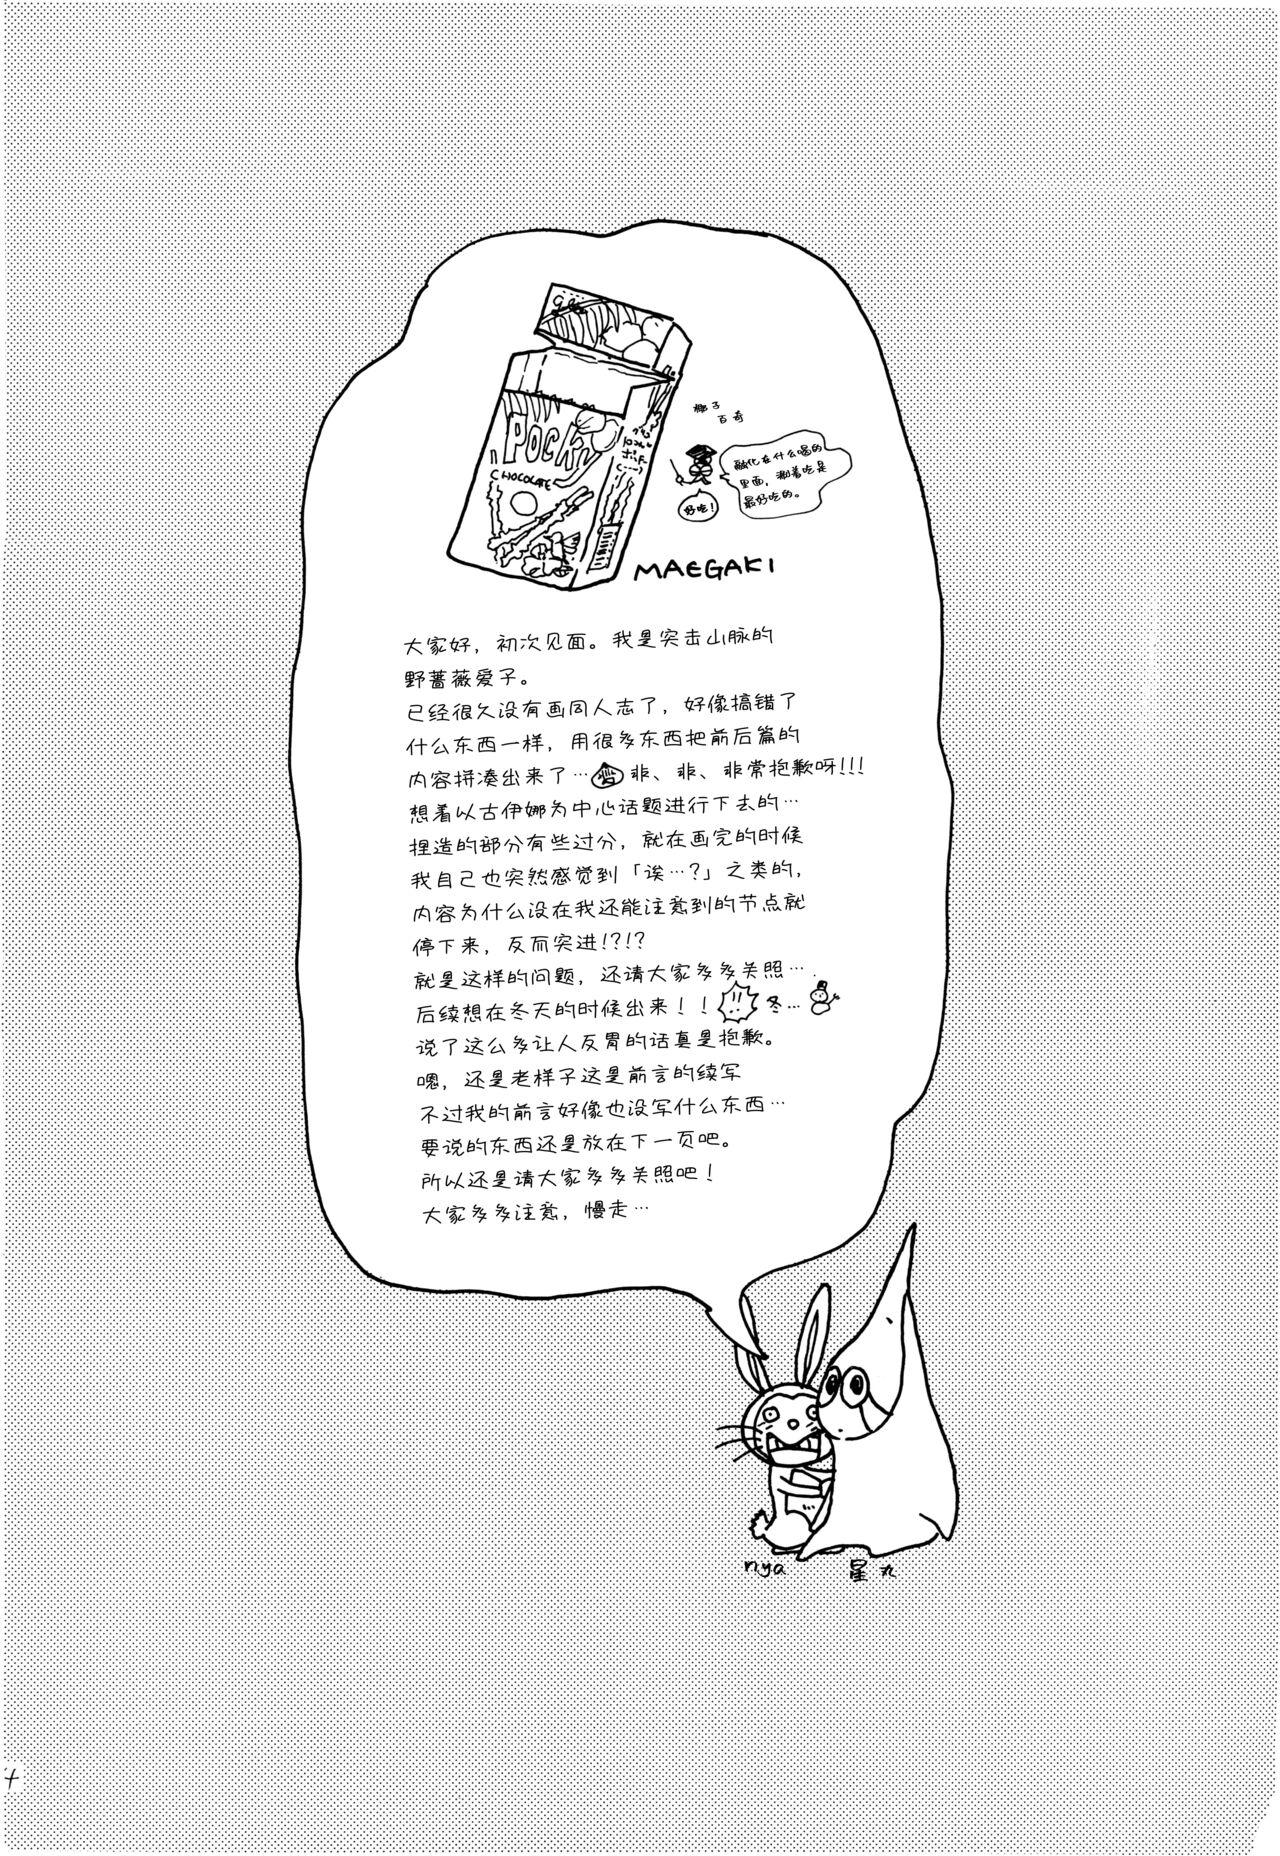 POCKY
CHOCOLATE
椰子
百奇
融化在什么喝的
里面，涮着吃是
最好吃的。
好吃！
MAEGAKI
大家好，初次见面。我是突击山脉的
野蔷薇爱子。
已经很久没有画同人志了，好像搞错了
什么东西一样，用很多东西把前后篇的
内容拼凑出来了…非、非、非常抱歉呀!!!
想着以古伊娜为中心话题进行下去的…
捏造的部分有些过分，就在画完的时候
我自己也突然感觉到「诶…?」之类的，
内容为什么没在我还能注意到的节点就
停下来，反而突进!?!?
就是这样的问题，还请大家多多关照….
后续想在冬天的时候出来！！冬…
说了这么多让人反胃的话真是抱歉。
嗯，还是老样子这是前言的续写
不过我的前言好像也没写什么东西…
要说的东西还是放在下一页吧。
所以还是请大家多多关照吧！
大家多多注意，慢走…
nya
星丸
4